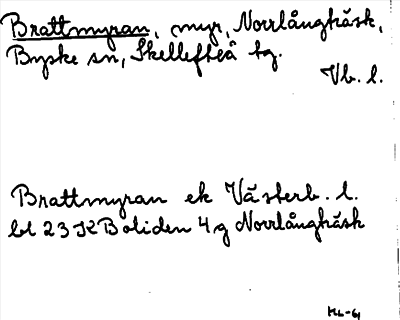 Brattmyran, myr, Norrlångträsk,
Byske sn, Skellefteå tg.
Vb. l.
Brattmyran ek Västerb. l.
bl 23 K Boliden 4g Norrlångträsk